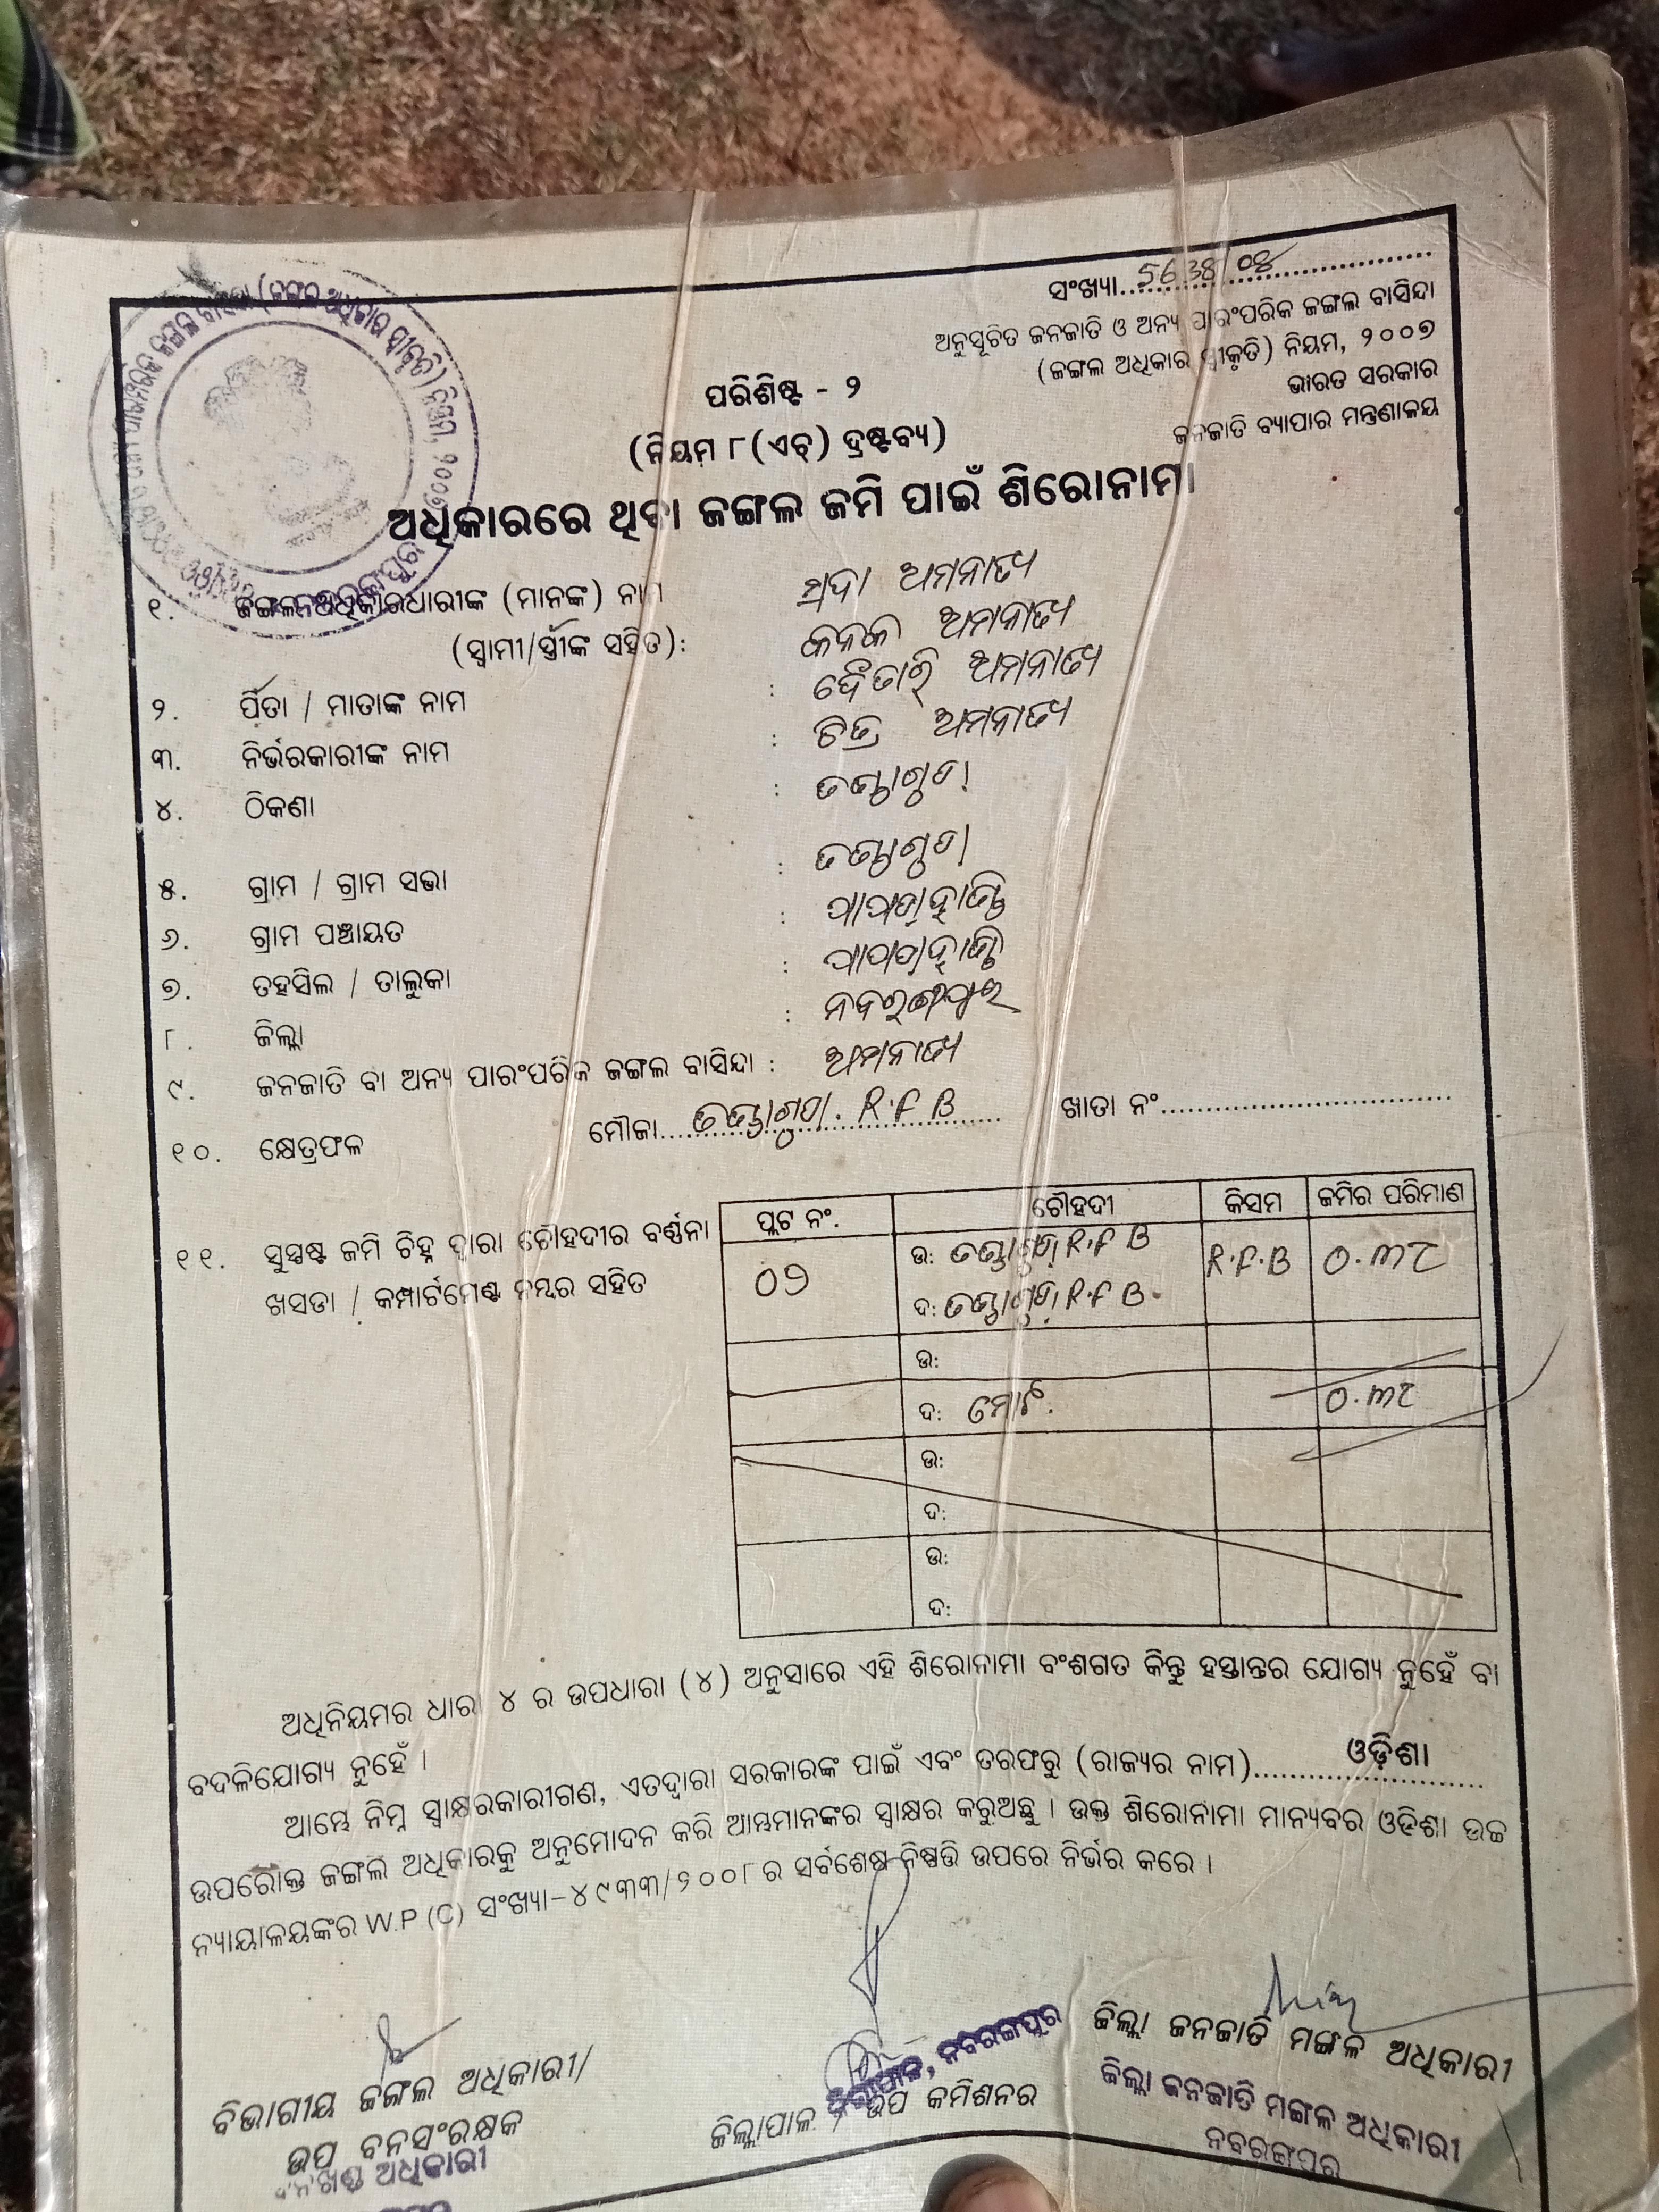 ସଂଖ୍ୟା
ଅନୁସୂଚିତ ଜନଜାତି ଓ ଅନ୍ୟ ପାରଂପରିକ ଜଙ୍ଗଲ ବାସିନ୍ଦା
(ଜଙ୍ଗଲ ଅଧିକାର ସ୍ୱୀକୃତି) ନିୟମ, ୨୦୦୭
ଭାରତ ସରକାର
ଜନଜାତି ବ୍ୟାପାର ମନ୍ତ୍ରଣାଳୟ
ପରିଶିଷ୍ଟ - ୨
(ନିୟମ ୮(ଏଚ୍) ଦ୍ରଷ୍ଟବ୍ୟ)
ଅଧିକାରରେ ଥିବା ଜଙ୍ଗଲ ଜମି ପାଇଁ ଶିରୋନାମା
୧. ଜଙ୍ଗଲ ଅଧିକାରଧାରୀଙ୍କ (ମାନଙ୍କ) ନାମ ଅମନାତ୍ୟ
(ସ୍ୱାମୀ/ସ୍ତ୍ରୀଙ୍କ ସହିତ): କନକ ଅମନାତ୍ୟ
୨. ପିତା / ମାତାଙ୍କ ନାମ : ଦୈତାରି ଅମନାତ୍ୟ
୩. ନିର୍ଭରକାରୀଙ୍କ ନାମ : ଅମନାତ୍ୟ
୪. ଠିକଣା :
୫. ଗ୍ରାମ / ଗ୍ରାମ ସଭା :
୬. ଗ୍ରାମ ପଞ୍ଚାୟତ : ପାପଡ଼ାହାଣ୍ଡି
୭. ତହସିଲ / ତାଲୁକା : ପାପଡ଼ାହାଣ୍ଡି
୮. ଜିଲ୍ଲା : ନବରଙ୍ଗପୁର
୯. ଜନଜାତି ବା ଅନ୍ୟ ପାରଂପରିକ ଜଙ୍ଗଲ ବାସିନ୍ଦା : ଅମନାତ୍ୟ
୧୦. କ୍ଷେତ୍ରଫଳ ମୌଜା R.F B ଖାତା ନଂ
୧୧. ସୁସ୍ପଷ୍ଟ ଜମି ଚିହ୍ନ ଦ୍ୱାରା ଚୌହଦୀର ବର୍ଣ୍ଣନା
ଖସଡା / କମ୍ପାର୍ଟମେଣ୍ଟ ନମ୍ବର ସହିତ
ପ୍ଲଟ ନଂ. ଚୌହଦୀ କିସମ ଜମିର ପରିମାଣ
୦୨ ଉ: R.F B R.F.B ୦.୩୮
ଦ: R.F B
ଉ:
ଦ: ମୋଟ ୦.୩୮
ଉ:
ଦ:
ଉ:
ଦ:
ଅଧିନିୟମର ଧାରା ୪ ର ଉପଧାରା (୪) ଅନୁସାରେ ଏହି ଶିରୋନାମା ବଂଶଗତ କିନ୍ତୁ ହସ୍ତାନ୍ତର ଯୋଗ୍ୟ ନୁହେଁ ବା
ବଦଳିଯୋଗ୍ୟ ନୁହେଁ ।
ଆମ୍ଭେ ନିମ୍ନ ସ୍ୱାକ୍ଷରକାରୀଗଣ, ଏତଦ୍ୱାରା ସରକାରଙ୍କ ପାଇଁ ଏବଂ ତରଫରୁ (ରାଜ୍ୟର ନାମ) ଓଡ଼ିଶା
ଉପରୋକ୍ତ ଜଙ୍ଗଲ ଅଧିକାରକୁ ଅନୁମୋଦନ କରି ଆମ୍ଭମାନଙ୍କର ସ୍ୱାକ୍ଷର କରୁଅଛୁ । ଉକ୍ତ ଶିରୋନାମା ମାନ୍ୟବର ଓଡିଶା ଉଚ୍ଚ
ନ୍ୟାୟାଳୟଙ୍କର W.P (C) ସଂଖ୍ୟା-୪୯୩୩/୨୦୦୮ ର ସର୍ବଶେଷ ନିଷ୍ପତ୍ତି ଉପରେ ନିର୍ଭର କରେ ।
ବିଭାଗୀୟ ଜଙ୍ଗଲ ଅଧିକାରୀ/
ଉପ ବନସଂରକ୍ଷକ
ବନଖଣ୍ଡ ଅଧିକାରୀ
ଜିଲ୍ଲାପାଳ, ନବରଙ୍ଗପୁର
ଜିଲ୍ଲାପାଳ / ଉପ କମିଶନର
ଜିଲ୍ଲା ଜନଜାତି ମଙ୍ଗଳ ଅଧିକାରୀ
ଜିଲ୍ଲା ଜନଜାତି ମଙ୍ଗଳ ଅଧିକାରୀ
ନବରଙ୍ଗପୁର